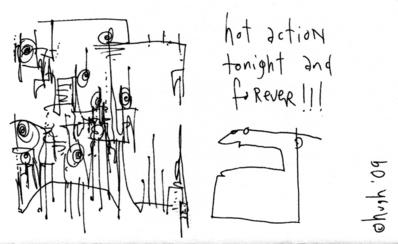 hot action
tonight and
forever!!!
@hugh '09